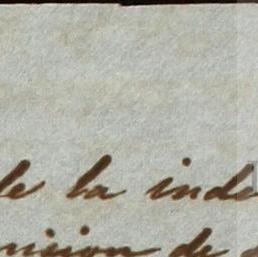 le la inde
nision de